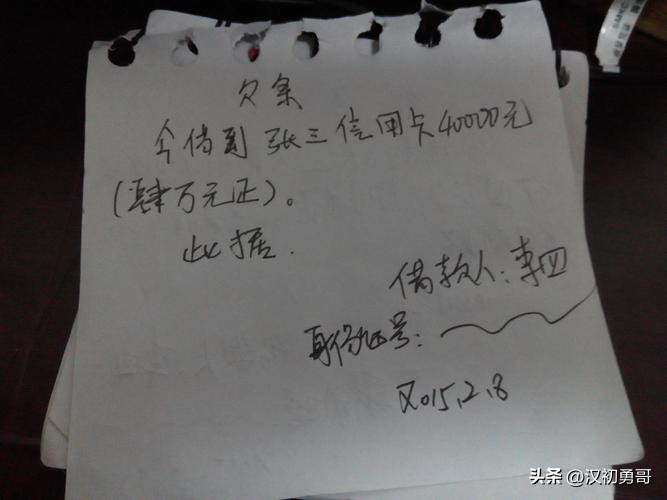 欠条
今借到张三信用卡40000元
(肆万元正)。
此据.
借款人:李四
身份证号:
2015.2.8
头条 @汉初勇哥